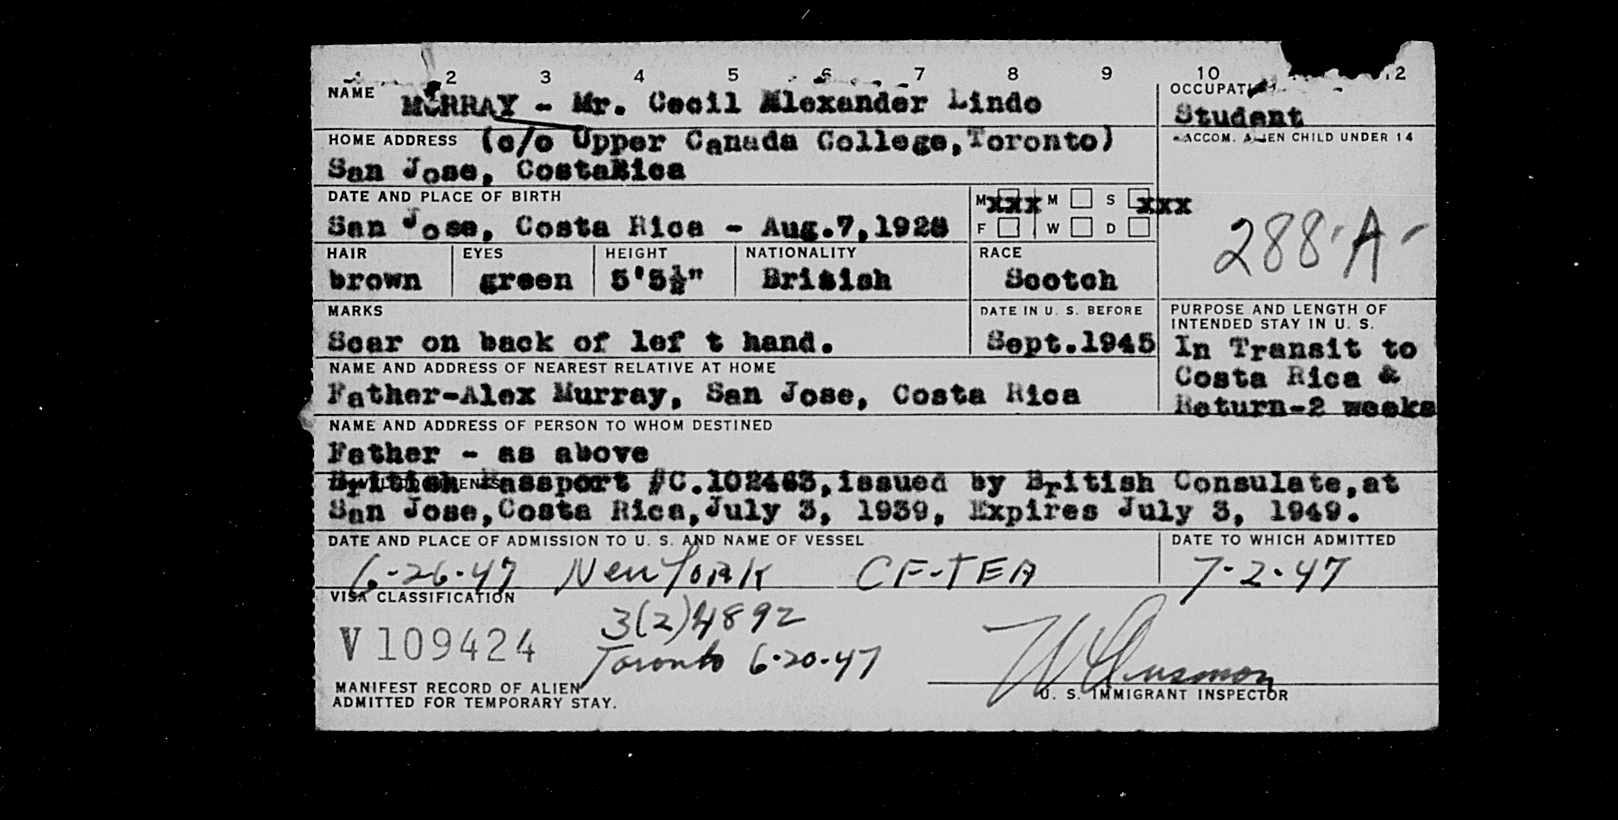 2 3 4 5 6 7 8 9 10 12
NAME MURRAY - Mr. Cecil Alexander Lindo
OCCUPATI
Student
HOME ADDRESS (c/o Upper Canada College,Toronto)
San Jose, CostaRica
ACCOM. ALIEN CHILD UNDER 14
DATE AND PLACE OF BIRTH
San Jose, Costa Rica - Aug.7,1928
M xxx M S xxx
F W D
288-A-
HAIR EYES HEIGHT NATIONALITY RACE
brown green 5'5½" British Scotch
MARKS
Scar on back of lef t hand.
DATE IN U. S. BEFORE
Sept.1945
PURPOSE AND LENGTH OF
INTENDED STAY IN U. S.
In Transit to
Costa Rica &
Return-2 weeks
NAME AND ADDRESS OF NEAREST RELATIVE AT HOME
Father-Alex Murray, San Jose, Costa Rica
NAME AND ADDRESS OF PERSON TO WHOM DESTINED
Father - as above
British Passport #C.102463,issued by British Consulate,at
San Jose,Costa Rica,July 3, 1939, Expires July 3, 1949.
DATE AND PLACE OF ADMISSION TO U. S. AND NAME OF VESSEL
6-26-47 New York CF-TEA
DATE TO WHICH ADMITTED
7-2-47
VISA CLASSIFICATION
V109424
3(2)4892
Toronto 6-20-47
MANIFEST RECORD OF ALIEN
ADMITTED FOR TEMPORARY STAY.
U. S. IMMIGRANT INSPECTOR